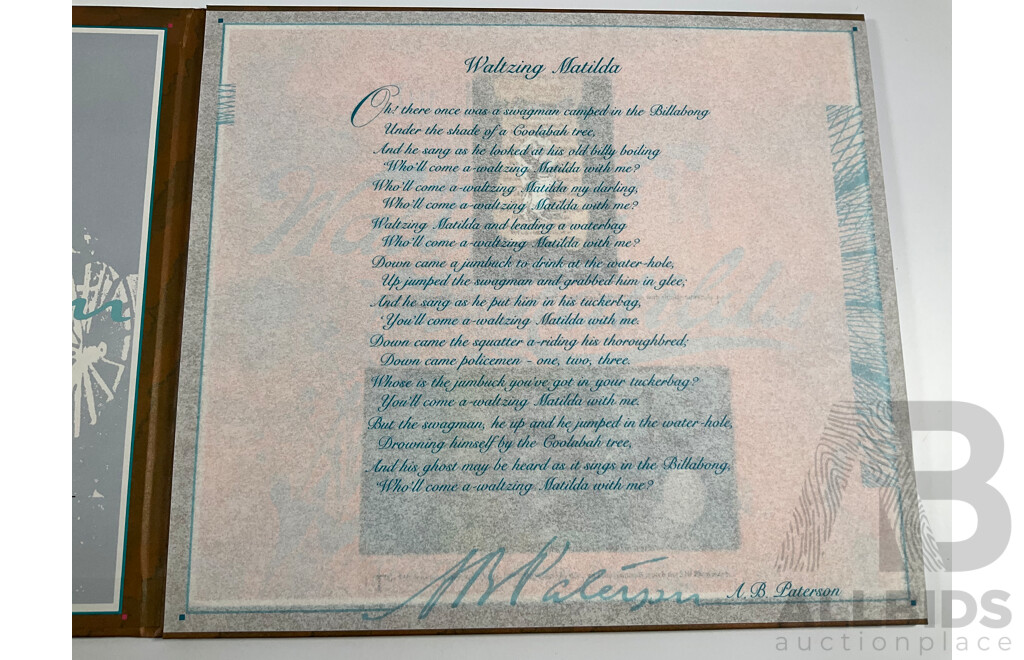 Waltzing Matilda
Oh! there once was a swagman camped in the Billabong
Under the shade of a Coolabah tree,
And he sang as he looked at his old billy boiling
'Who'll come a-waltzing Matilda with me?
Who'll come a-waltzing Matilda my darling,
Who'll come a-waltzing Matilda with me?
Waltzing Matilda and leading a waterbag
Who'll come a-waltzing Matilda with me?
Down came a jumbuck to drink at the water-hole,
Up jumped the swagman and grabbed him in glee;
And he sang as he put him in his tuckerbag,
'You'll come a-waltzing Matilda with me.
Down came the squatter a-riding his thoroughbred;
Down came policemen - one, two, three.
Whose is the jumbuck you've got in your tuckerbag?
You'll come a-waltzing Matilda with me.
But the swagman, he up and he jumped in the water-hole,
Drowning himself by the Coolabah tree,
And his ghost may be heard as it sings in the Billabong,
'Who'll come a-waltzing Matilda with me?
AB Paterson
A. B. Paterson
AB
ALLBIDS
auctionplace